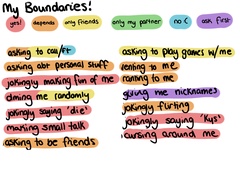 My Boundaries!
yes!
depends
only friends
only my partner
no :(
ask first
asking to call/ft
asking abt personal stuff
jokingly making fun of me
dming me randomly
jokingly saying 'die'
making small talk
asking to be friends
asking to play games w/me
venting to me
ranting to me
giving me nicknames
jokingly flirting
jokingly saying 'kys'
cursing around me